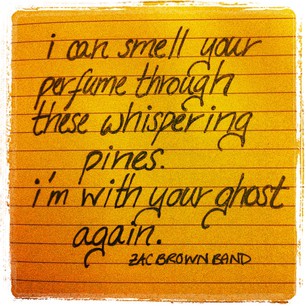 i can smell your
perfume through
these whispering
pines.
i'm with your ghost
again.
ZAC BROWN BAND